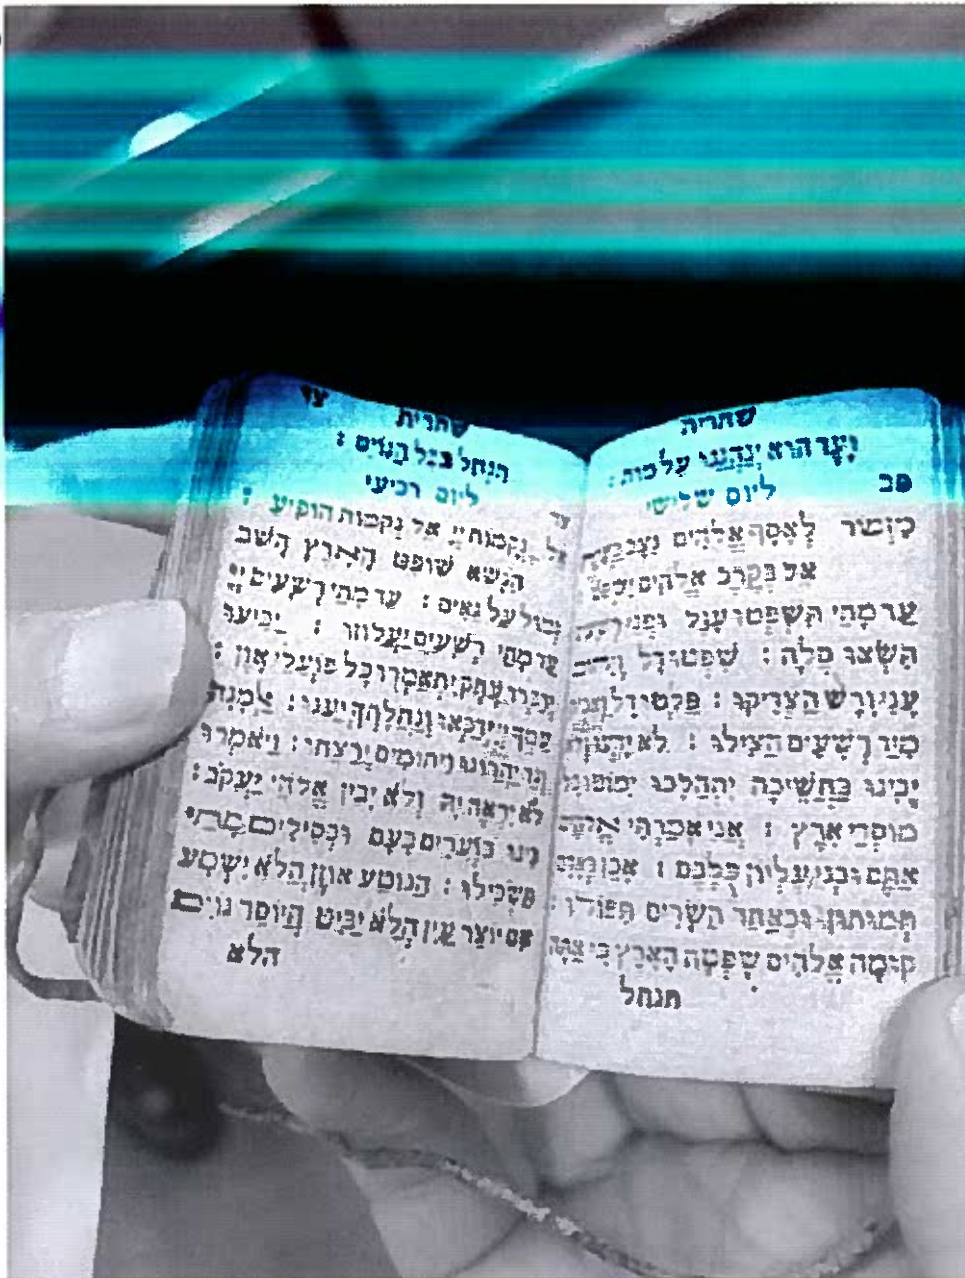 שחרית
הוא יְנַהֲגֵנוּ עַל מוּת :
פב ליום שלישי
לְאָסָף אֱלֹהִים
אֵל בְּקֶרֶב אֱלֹהִים
עַד מָתַי תִּשְׁפְּטוּ עָוֶל וּפְנֵי
סֶלָה : שִׁפְטוּ דָל
עָנִי וָרָשׁ הַצְדִּיקוּ : פַּלְּטוּ דַל
מִיַּד רְשָׁעִים הַצִּילוּ : לֹא יָדְעוּ
יָבִינוּ בַּחֲשֵׁיכָה יִתְהַלָּכוּ יִמּוֹטוּ
מוֹסְדֵי אָרֶץ : אֲנִי אָמַרְתִּי
אַתֶּם וּבְנֵי עֶלְיוֹן כֻּלְּכֶם : אָכֵן
תְּמוּתוּן וּכְאַחַד הַשָּׂרִים תִּפּוֹלוּ :
קוּמָה אֱלֹהִים שָׁפְטָה הָאָרֶץ כִּי אַתָּה
תנחל
שחרית
תִנְחַל בְּכָל הַגּוֹיִם :
ליום רביעי
צד
נְקָמוֹת יְיָ אֵל נְקָמוֹת הוֹפִיעַ :
הִנָּשֵׂא שׁוֹפֵט הָאָרֶץ הָשֵׁב
גְּמוּל עַל גֵּאִים : עַד מָתַי רְשָׁעִים יְיָ
עַד מָתַי רְשָׁעִים יַעֲלוֹזוּ : יַבִּיעוּ
יְדַבְּרוּ עָתָק יִתְאַמְּרוּ כָּל פּוֹעֲלֵי אָוֶן :
עַמְּךָ יְיָ יְדַכְּאוּ וְנַחֲלָתְךָ יְעַנּוּ : אַלְמָנָה
וְגֵר יַהֲרוֹגוּ וִיתוֹמִים יְרַצֵּחוּ : וַיֹּאמְרוּ
לֹא יִרְאֶה יָּהּ וְלֹא יָבִין אֱלֹהֵי יַעֲקֹב :
בִּינוּ בּוֹעֲרִים בָּעָם וּכְסִילִים מָתַי
תַּשְׂכִּילוּ : הֲנוֹטַע אוֹזֶן הֲלֹא יִשְׁמָע
אִם יוֹצֵר עַיִן הֲלֹא יַבִּיט הֲיוֹסֵר גּוֹיִם
הלא